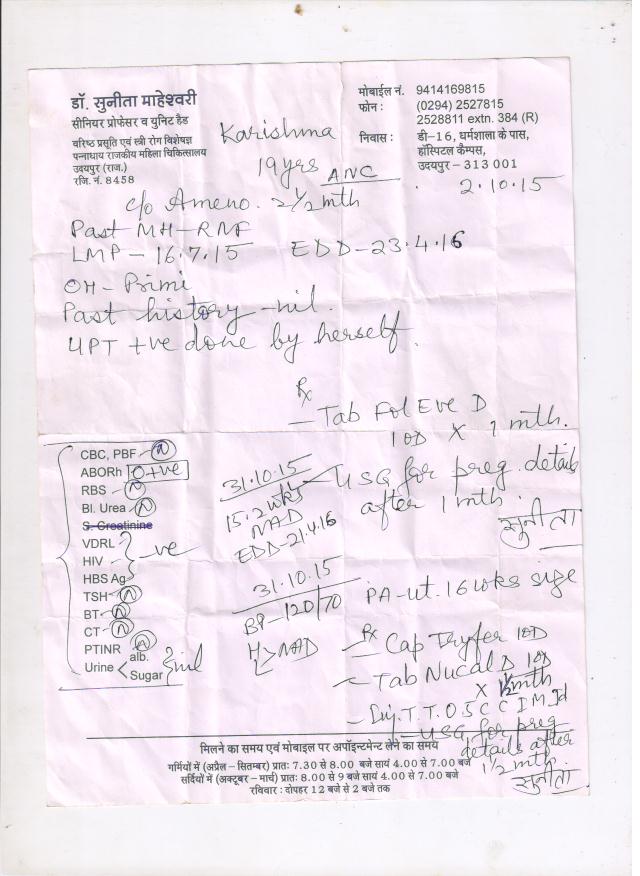 डॉ. सुनीता माहेश्वरी
सीनियर प्रोफेसर व युनिट हैड
वरिष्ठ प्रसूति एवं स्त्री रोग विशेषज्ञ
पन्नाधाय राजकीय महिला चिकित्सालय
उदयपुर (राज.)
रजि. नं. 8458
मोबाईल नं. 9414169815
फोन : (0294) 2527815
2528811 extn. 384 (R)
निवास : डी-16, धर्मशाला के पास,
हॉस्पिटल कैम्पस,
उदयपुर - 313 001
Karishma
19 yrs ANC
2.10.15
c/o Ameno. 2½ mth
Past MH - RNF
LMP - 16.7.15 EDD - 23.4.16
OH - Primi
Past history - nil.
UPT +ve done by herself.
Rx
- Tab Fol Eve D
1OD X 1 mth.
- USG for preg. details
after 1 mth
सुनीता
CBC, PBF - N
ABORh O+ve
RBS - N
Bl. Urea - N
S. Creatinine
VDRL
HIV - ve
HBS Ag
TSH - N
BT - N
CT - N
PTINR N
Urine alb. Sugar nil
31.10.15
15.2 wks
NAD
EDD - 21.4.16
31.10.15
BP - 120/70
H L > NAD
PA - ut. 16 wks size
Rx
- Cap Tryfer 1OD
- Tab Nucal D 1OD
X ½ mth
- Inj. T.T. 0.5 CC IM
- USG for preg
details after
1/2 mth
सुनीता
मिलने का समय एवं मोबाइल पर अपॉइन्टमेन्ट लेने का समय
गर्मियों में (अप्रैल - सितम्बर) प्रातः 7.30 से 8.00 बजे सायं 4.00 से 7.00 बजे
सर्दियों में (अक्टूबर - मार्च) प्रातः 8.00 से 9 बजे सायं 4.00 से 7.00 बजे
रविवार : दोपहर 12 बजे से 2 बजे तक